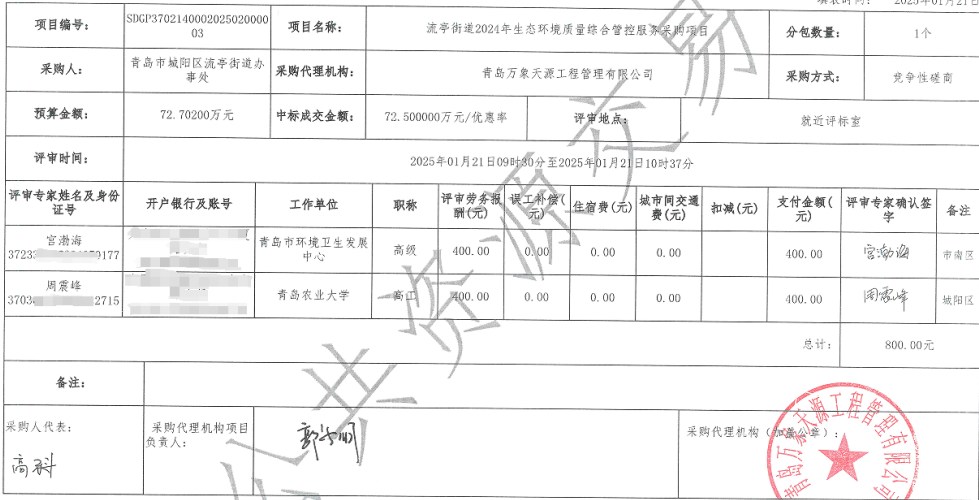 填表时间： 2025年01月21日
项目编号： SDGP370214000202502000003 项目名称： 流亭街道2024年生态环境质量综合管控服务采购项目 分包数量： 1个
采购人： 青岛市城阳区流亭街道办事处 采购代理机构： 青岛万象天源工程管理有限公司 采购方式： 竞争性磋商
预算金额： 72.70200万元 中标成交金额： 72.500000万元/优惠率 评审地点： 就近评标室
评审时间： 2025年01月21日09时30分至2025年01月21日10时37分
评审专家姓名及身份证号 开户银行及账号 工作单位 职称 评审劳务报酬(元) 误工补偿(元) 住宿费(元) 城市间交通费(元) 扣减(元) 支付金额(元) 评审专家确认签字 备注
宫渤海 青岛市环境卫生发展中心 高级 400.00 0.00 0.00 0.00 400.00 宫渤海 市南区
3723 0177
周震峰 青岛农业大学 高工 400.00 0.00 0.00 0.00 400.00 周震峰 城阳区
3703 2715
总计： 800.00元
备注：
采购人代表： 采购代理机构项目负责人： 采购代理机构（加盖公章）：
高科
公共资源交易
青岛万象天源工程管理有限公司